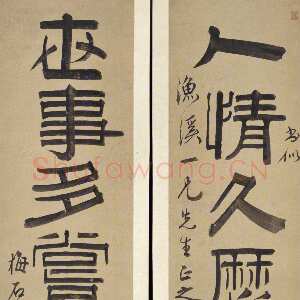 人情久
書似
漁溪一兄先生正之
世事多
梅石
Shufawang.CN